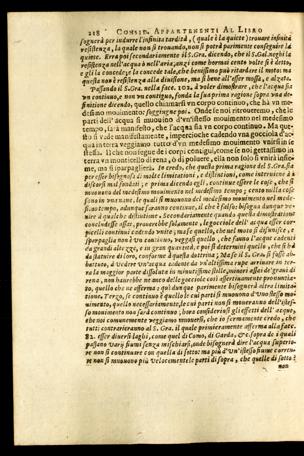 218 CONSID. APPARTENENTI AL LIBRO
sognerà per indurre l'infinita tardità, (quale è la quiete) trouare infinita
resistenza, la quale non si trouando, non si potrà parimente conseguire la
quiete. Erra poi secondariamente il S. Gra. dicendo, che il S. Gal. neghi la
resistenza nell'acqua ò nell'aria, anzi come hormai cento volte si è detto,
e gli la concede; e la concede tale, che benissimo può ritardare il moto: ma
questa non è resistenza alla diuisione, ma sì bene all'esser mossa, e alzata.
Passando il S. Gra. nella facc. 102. à voler dimostrare, che l'acqua sia
vn continuo, e non vn contiguo, fonda la sua prima ragione sopra vna de-
finizione dicendo, quello chiamarsi vn corpo continuo, che hà vn me-
desimo mouimento; soggiugne poi: Onde se noi ritroueremo, che le
parti dell'acqua si muouino d'vn'istesso mouimento nel medesimo
tempo, sarà manifesto, che l'acqua sia vn corpo continuo. Ma que-
sto si vede manifestamente, imperoche cadendo vna gocciola d'ac-
qua in terra veggiamo tutto d'vn medesimo mouimento vnirsi in se
stessa. Il che non segue de' corpi contigui, come se noi gettassimo in
terra vn monticello di rena, ò di poluere, ella non solo si vnirà insie-
me, ma si sparpaglierà. Io credo, che questa prima ragione del S. Gra. sia
per esser bisognosa di molte limitazioni, e distinzioni, come interuiene à i
discorsi mal fondati; e prima dicendo egli, continue esser le cose, che si
muouono del medesimo mouimento nel medesimo tempo; cento mila cose
sono in vna naue, le quali si muouono del medesimo mouimento nel mede-
simo tempo, adunque saranno continue, il che è falso: bisogna dunque ve-
nire à qualche distinzione. Secondariamente quando questa dimostrazione
concludesse assai, prouerebbe solamente, le gocciole dell'acqua esser cor-
picelli continui cadendo vnite; ma se quello, che nel moto si disunisce, e
sparpaglia non è vn continuo, veggasi quello, che fanno l'acque cadenti
da grandi altezze, e in gran quantità, e poi si determini quello, che si hà
da statuire di loro, conforme à questa dottrina; Ma se il S. Gra. si fusse ab-
battuto, à vedere vn'acqua cadente da vn'altissima rupe arriuare in ter-
ra la maggior parte dissoluta in minutissime stille, minori assai de' grani di
rena, non haurebbe ne anco delle gocciole così assertiuamente pronunzia-
to, quello che ne afferma; quì dunque parimente bisognerà altra limita-
zione. Terzo, se continuo è quello le cui parti si muouono d'vn'istesso mo-
uimento, quello necessariamente, le cui parti non si moueranno dell'istes-
so mouimento non sarà continuo; hora considerinsi gli effetti dell'acqua,
che noi comunemente veggiamo muouersi, che io fermamente credo, che
tutti contrarieranno al S. Gra. il quale primieramente afferma alla facc.
82. esser diuersi laghi, come quel di Como, di Garda, &c. sopra de i quali
passano varij fiumi senza mischiarsi, onde bisognerà dire l'acqua superio-
re non si continuare con quella di sotto: ma più d'vn'istesso fiume corren-
te non si muouono più velocemente le parti di sopra, che quelle di sotto?
non